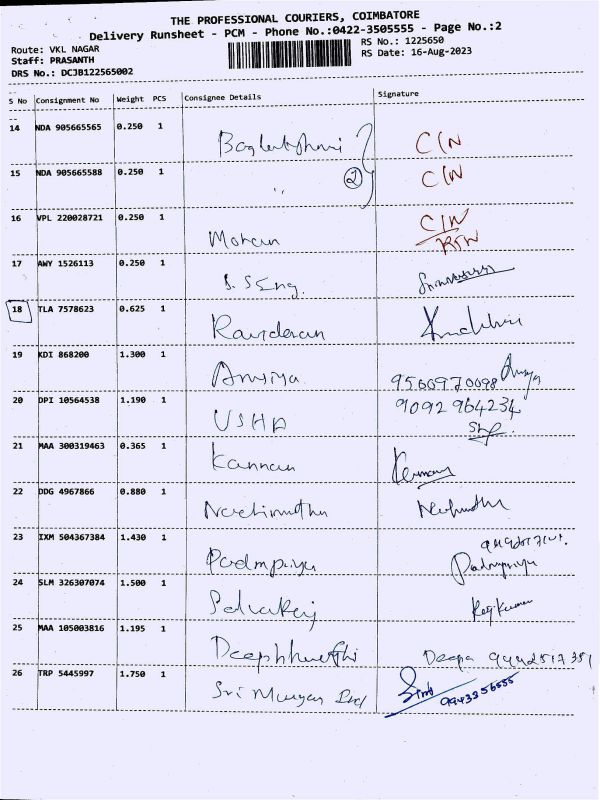 THE PROFESSIONAL COURIERS, COIMBATORE
Delivery Runsheet - PCM - Phone No.:0422-3505555 - Page No.:2
Route: VKL NAGAR
RS No.: 1225650
Staff: PRASANTH
RS Date: 16-Aug-2023
DRS No.: DCJB122565002
S No Consignment No Weight PCS Consignee Details Signature
14 NDA 905665565 0.250 1 C/N
15 NDA 905665588 0.250 1 " 2 C/N
16 VPL 220028721 0.250 1 Mohan C/N
17 AWY 1526113 0.250 1 S.S Eng.
18 TLA 7578623 0.625 1
19 KDI 868200 1.300 1 Anusiya 9500970098
20 DPI 10564538 1.190 1 USHA 9092 964234
21 MAA 300319463 0.365 1 Kannan Kannan
22 DDG 4967866 0.880 1 Nachimuthu
23 IXM 504367384 1.430 1 Padmpriya Padmpriya
24 SLM 326307074 1.500 1 Selvaraj
25 MAA 105003816 1.195 1 Deepa 9442517351
26 TRP 5445997 1.750 1 Sri Murugan 9943356555